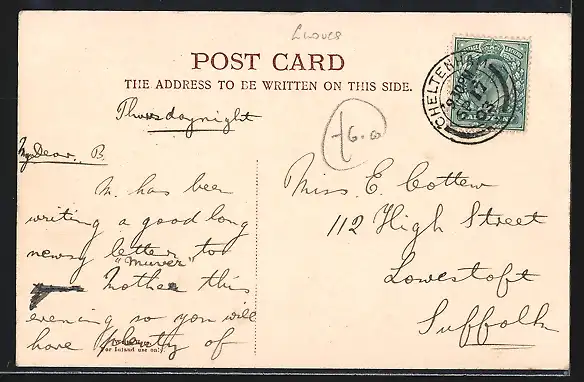 Louvers
POST CARD
THE ADDRESS TO BE WRITTEN ON THIS SIDE.
Thursdaynight
My Dear. B.
M. has been
writing a good long
newsy letter to
"Muver"
Mother this
evening so you will
have plenty of
For Inland use only.
Miss E. Cottew
112 High Street
Lowestoft
Suffolk
CHELTENHAM